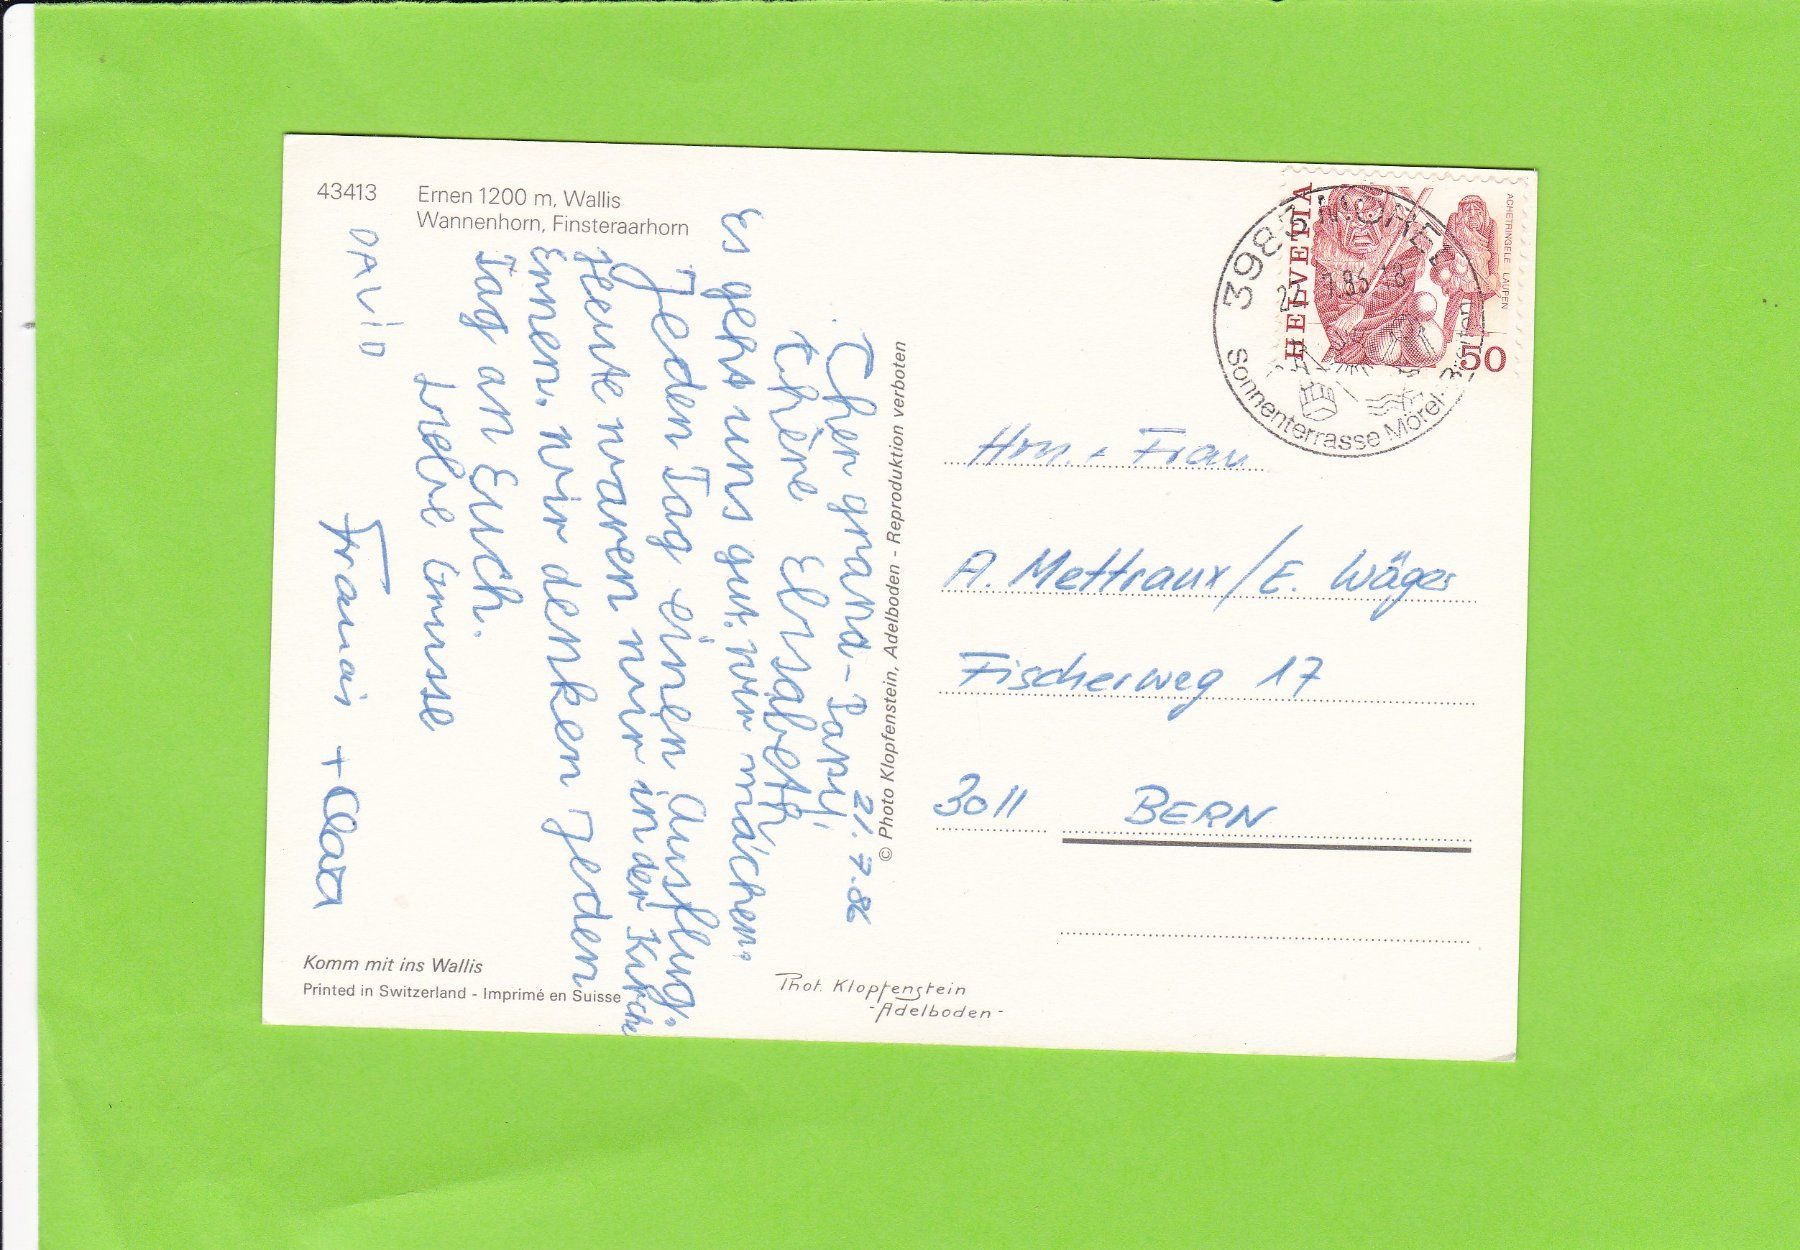 43413 Ernen 1200 m, Wallis
Wannenhorn, Finsteraarhorn
21.7.86
Cher grand-Papy,
chère Elisabeth
Es geht uns gut. wir machen
Jeden Tag einen Ausflug.
Heute waren wir in der Kirche
Ernen. wir denken Jeden
Tag an Euch.
Liebe Grüsse
DAViD
Francois + Clara
Komm mit ins Wallis
Printed in Switzerland - Imprimé en Suisse
© Photo Klopfenstein, Adelboden - Reproduktion verboten
Phot. Klopfenstein
-Adelboden-
HELVETIA
ACHETRINGELE LAUPEN
50
3983 MÖREL
Sonnenterrasse Mörel-
Hrn. + Frau
A. Mettraux/E. Wäger
Fischerweg 17
3011 BERN